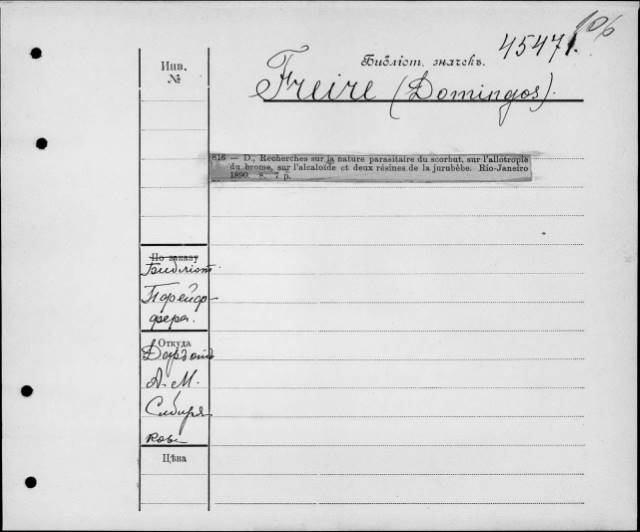 10/6
45471.
Инв.
№
Библіот. значекъ.
Freire (Domingos).
816 — D., Recherches sur la nature parasitaire du scorbut, sur l'allotropie
du brome, sur l'alcaloïde et deux résines de la jurubèbe. Rio-Janeiro
1890 8. 7 p.
По заказу
Библіот.
Пфейф-
фера.
Откуда
Даръ отъ
А. М.
Сибиря
кова
Цѣна